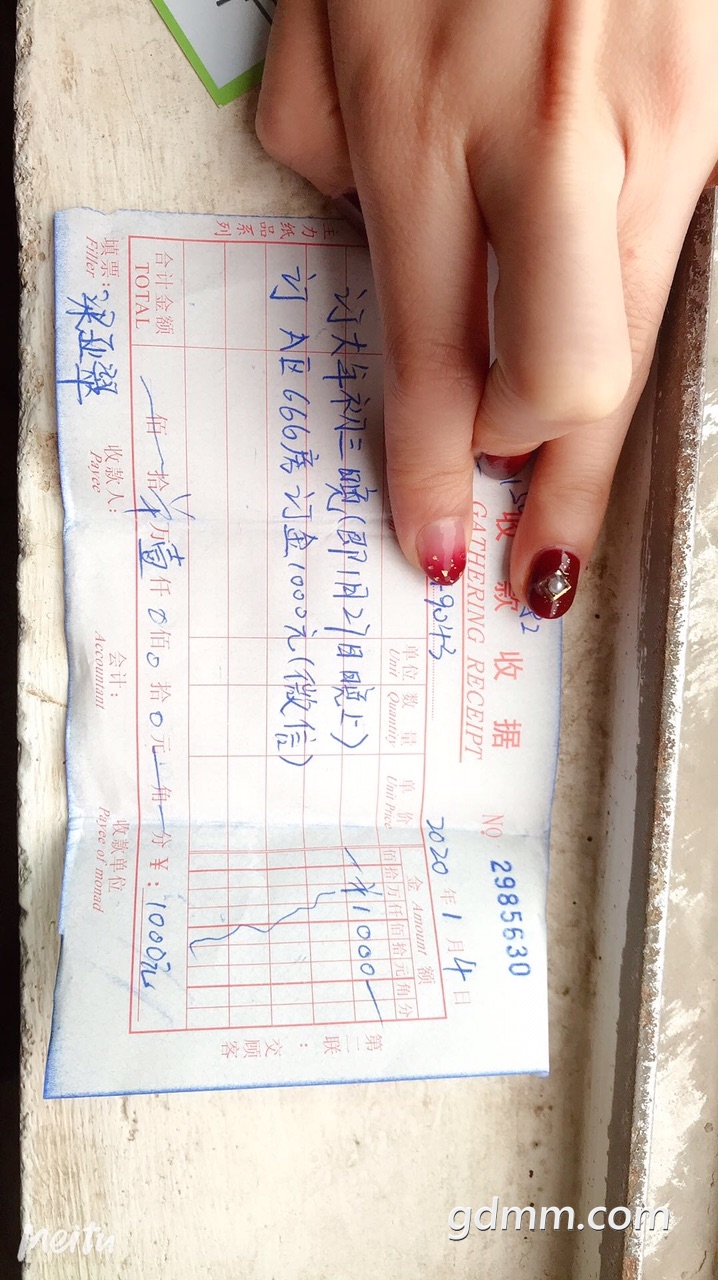 收款收据
GATHERING RECEIPT
NO 2985630
9043
2020年1月4日
单位 Unit 数量 Quantity 单价 Unit Price 金额 Amount
佰拾万仟佰拾元角分
订大年初三晚(即1月27日晚上) ¥1000
订 A区666房订金1000元(微信)
合计金额 TOTAL 佰 拾 万壹仟0佰0拾0元 角 分 ¥:1000元
填票: Filler 收款人: Payee 会计: Accountant 收款单位 Payee of monad
第二联:交顾客
主力纸品系列
gdmm.com
meitu